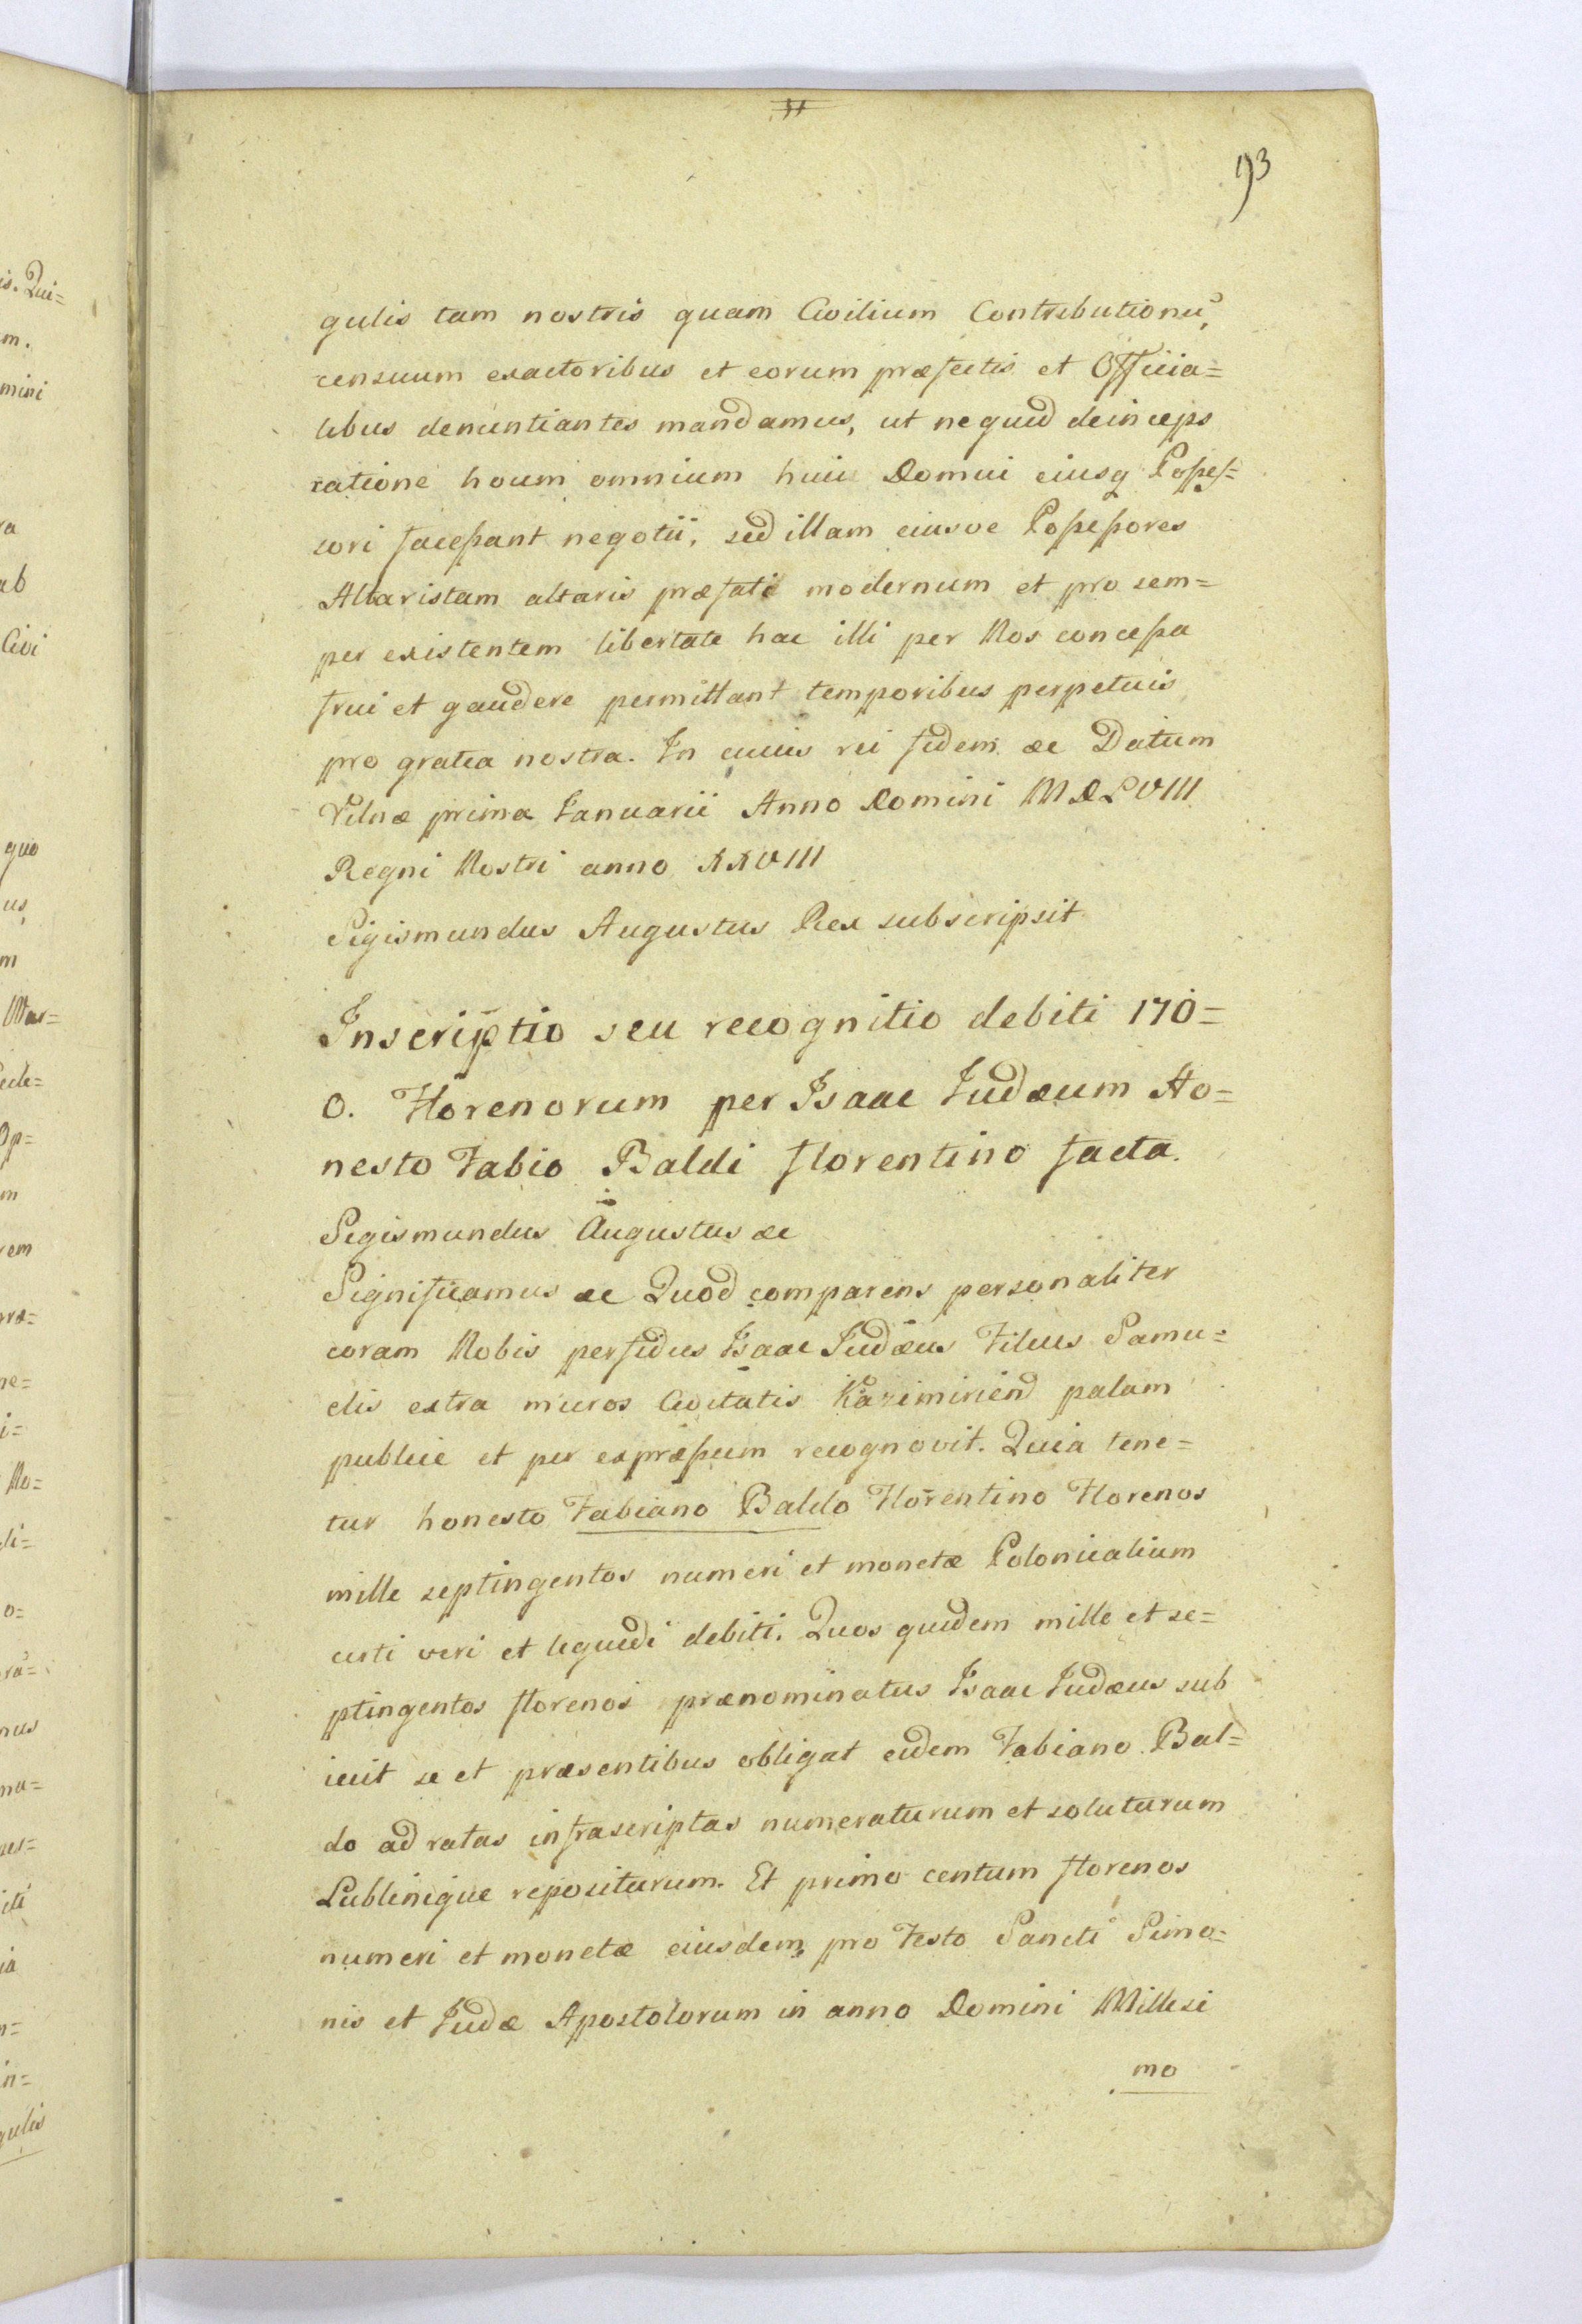 93
gulis tam nostris quam Civilium Contributionū,
censuum exactoribus et eorum præfectis et Officia=
libus denuntiantes mandamus, ut ne quid deinceps
ratione houm omnium huic Domui eiusq Posses=
sori facessant negotii, sed illam eiusve Possessores
Altaristam altaris præfati modernum et pro sem=
per existentem libertate hac illi per Nos concessa
frui et gaudere permittant temporibus perpetuis
pro gratia nostra. In cuius rei fidem æc Datum
Vilnæ prima Ianuarii Anno Domini MDLVIII
Regni Nostri anno XXVIII
Sigismundus Augustus Rex subscripsit
Inscriptio seu recognitio debiti 170=
0. Florenorum per Isaac Iudæum Ho=
nesto Fabio Baldi florentino facta.
Sigismundus Augustus æc
Significamus æc Quod comparens personaliter
coram Nobis perfidus Isaac Iudæus Filius Samu=
elis extra muros Civitatis Kazimirien̄d palam
publice et per expræssum recognovit. Quia tene=
tur honesto Fabiano Baldo Florentino Florenos
mille septingentos numeri et monetæ Polonicalium
certi veri et liquidi debiti. Quos quidem mille et se=
ptingentos florenos prænominatus Isaac Iudæus sub
iecit se et præsentibus obligat eidem Fabiano Bal=
do ad ratas infrascriptas numeraturum et soluturum
Lublinique repositurum. Et primo centum florenos
numeri et monetæ eiusdem, pro Festo Sancti Simo=
nis et Iudæ Apostolorum in anno Domini Millesi
mo